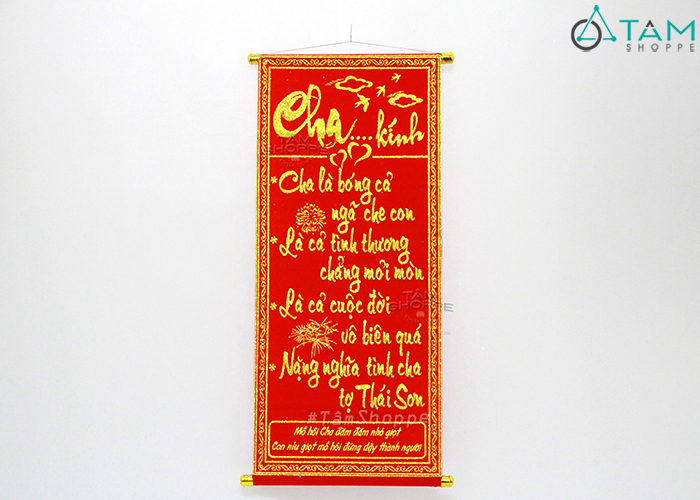 TÂM
SHOPPE
Cha.... kính
TÂM
SHOPPE
*Cha là bóng cả
ngã che con
*Là cả tình thương
chẳng mỏi mòn
TÂM
SHOPPE
*Là cả cuộc đời
vô biên quá
*Nặng nghĩa tình cha
tợ Thái Sơn
#TâmShoppe
Mồ hôi Cha đăm đăm nhỏ giọt
Con níu giọt mồ hôi đứng dậy thành người